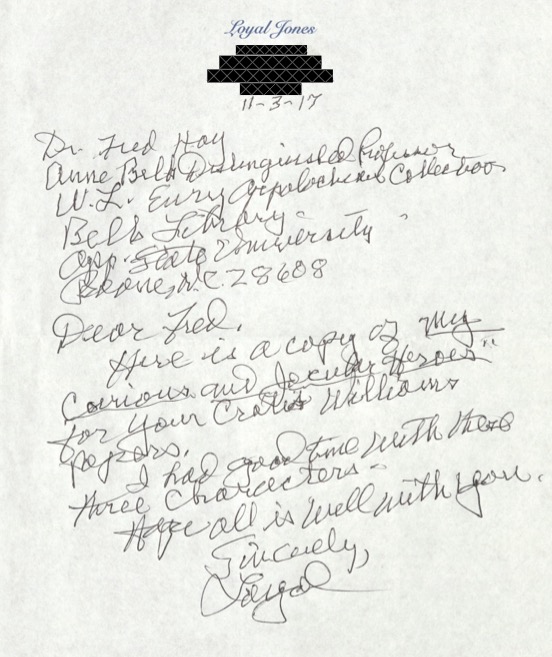 Loyal Jones
11-3-17
Dr. Fred Hay
Anne Belk Distinguished Professor
W.L. Eury Appalachian Collection
Belk Library
App. State University
Boone, N.C. 28608
Dear Fred,
Here is a copy of My
Curious and Jocular Heroes"
for your Cratis Williams
papers.
I had good time with these
three characters.
Hope all is well with you.
Sincerely,
Loyal